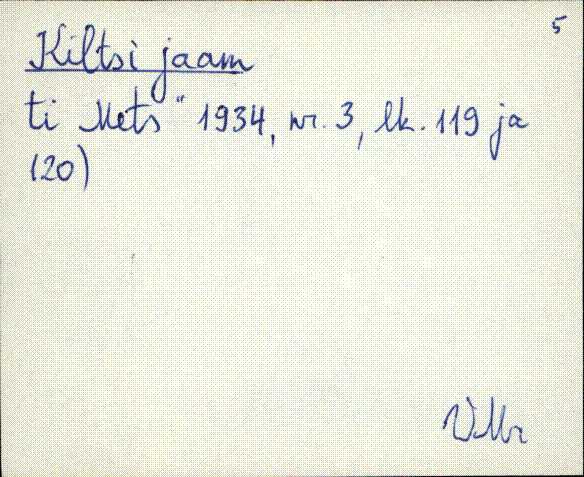 5
Kiltsi jaam
ti Mets" 1934, nr. 3, lk. 119 ja
120)
VMr